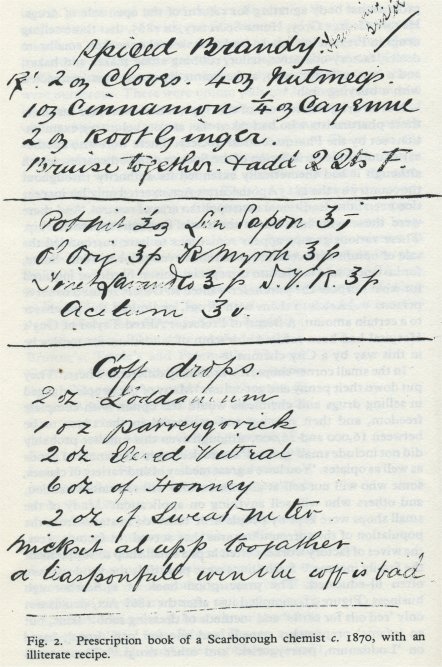 Spiced Brandy.
℞ 2 oz Cloves. 4 oz Nutmegs.
1 oz Cinnamon ¼ oz Cayenne
2 oz Root Ginger.
Bruise together. & add 2 Qts
Lin Sapon
Ol Ory Myrrh
S.V.R.
Acetum
Coff drops.
2 oz Loddanum
1 oz parreygorick
2 oz
6 oz of Honney
2 oz of
micksit al upp toogather
a teasponfull wen the coff is bad
Fig. 2. Prescription book of a Scarborough chemist c. 1870, with an
illiterate recipe.